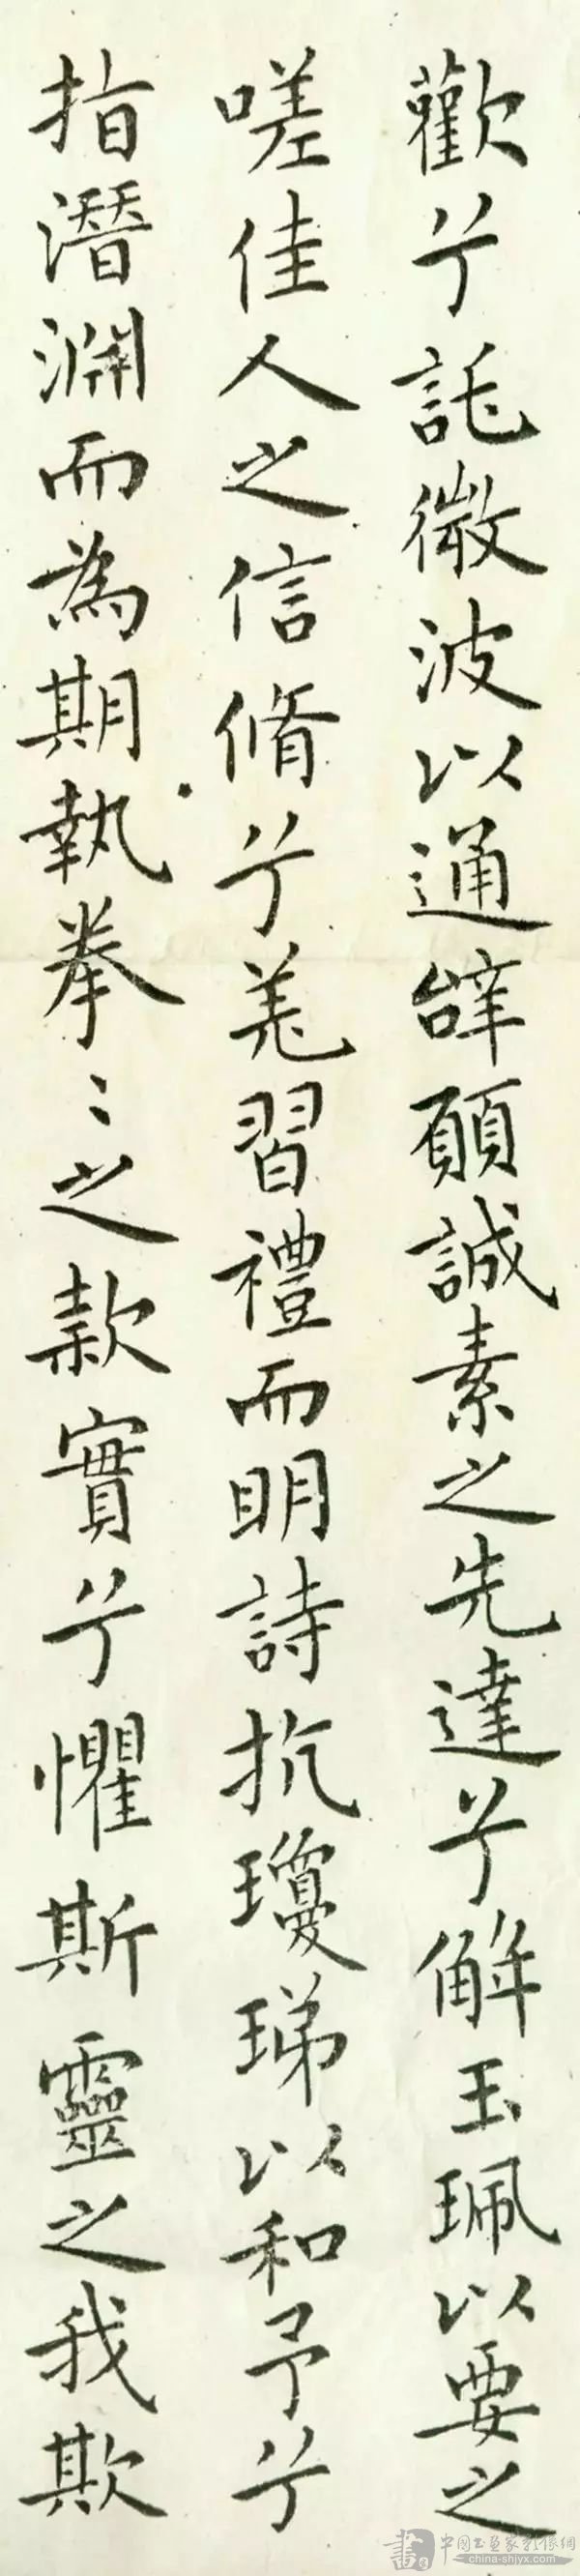 歡兮託微波以通辝願誠素之先達兮解玉珮以要之
嗟佳人之信脩兮羌習禮而明詩抗瓊珶以和予兮
指潛淵而為期執拳〻之款實兮懼斯靈之我欺
中国书画家影像網
china-shjyx.com